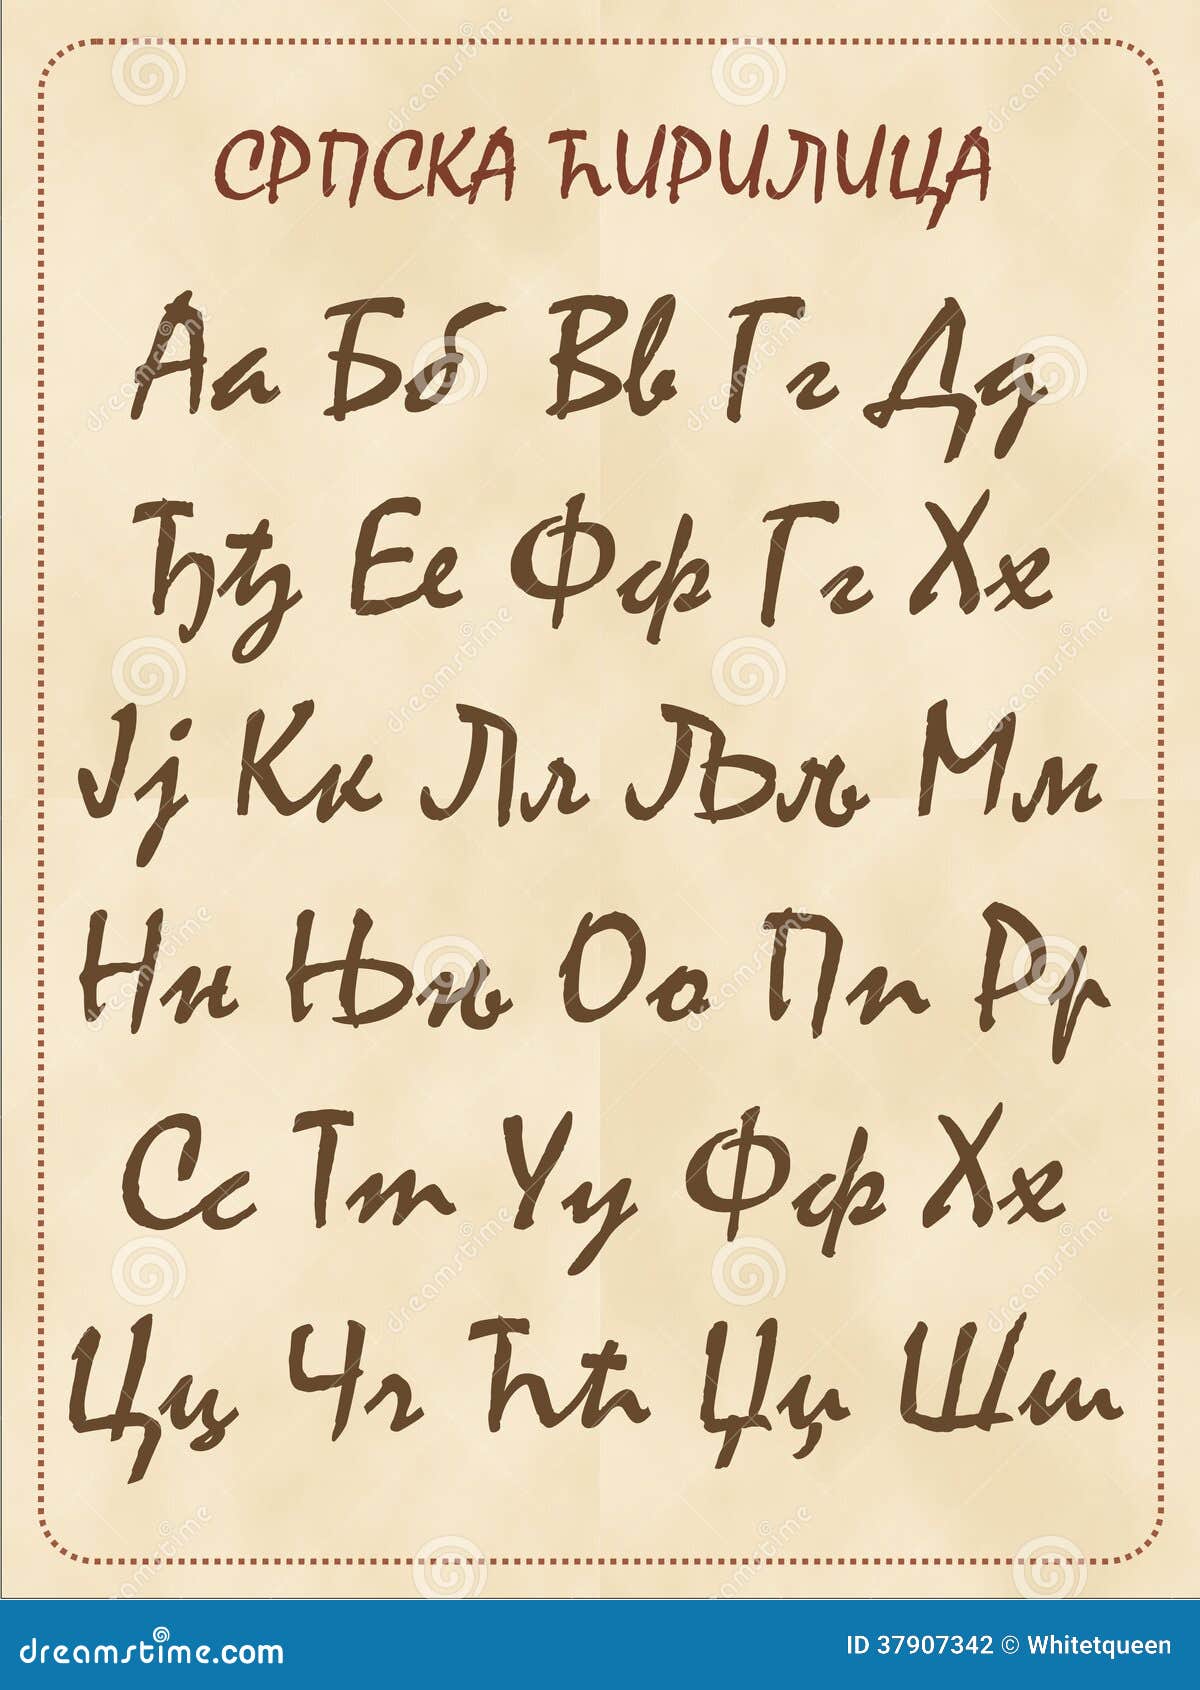 СРПСКА ЋИРИЛИЦА
Аа Бб Вв Гг Дд
Ђђ Ее Фф Гг Хх
Јј Кк Лл Љљ Мм
Нн Њњ Оо Пп Рр
Сс Тт Уу Фф Хх
Цц Чч Ћћ Џџ Шш
dreamstime.com
ID 37907342 © Whitetqueen